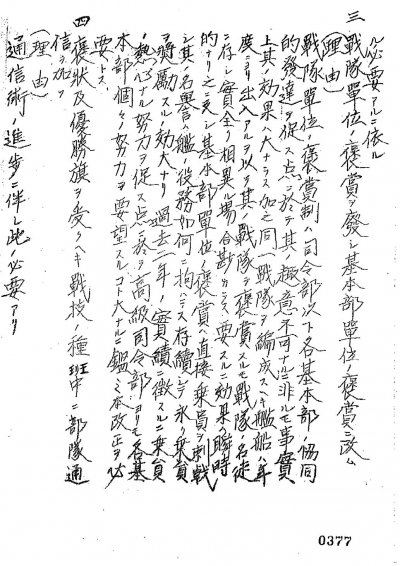 ル必要アルニ依ル
三 戰隊單位ノ褒賞ヲ發シ基本部單位ノ褒賞ニ改ム
(理由)
戰隊單位ノ褒賞制ハ司令部以下各基本部ノ協同
的發達ヲ促ス点ニ於テ其ノ趣意不可ナルニ非ルモ事實
上其ノ効果ハ大ナラス加之同一戰隊ヲ編成スヘキ艦船ハ年
度ニヨリ出入アルヲ以テ其ノ戰隊ヲ褒賞スルモ戰隊ノ名徒
ニ存シ實全ク相異ル場合尠カラス要スルニ効果ハ瞬時
的ナリ之ニ反シ基本部單位ノ褒賞ハ直接乗員ヲ刺戟
シ其ノ名譽ハ艦ノ役務如何ニ拘ハラス存續シテ永ク乗員
ヲ奬勵スル効大ナリ過去二年ノ實績ニ徴スルニ乗員
ノ熱心ナル努力ヲ促ス点ニ於テ高級司令部ヨリモ各基
本部個々ノ努力ヲ要望スルコト大ナルニ鑑ミ本改正ヲ必
要トス
四 褒狀及優勝旗ヲ受クヘキ戰技ノ種班中ニ部隊通
信ヲ加フ
(理由)
通信術ノ進歩ニ伴レ此ノ必要アリ
0377